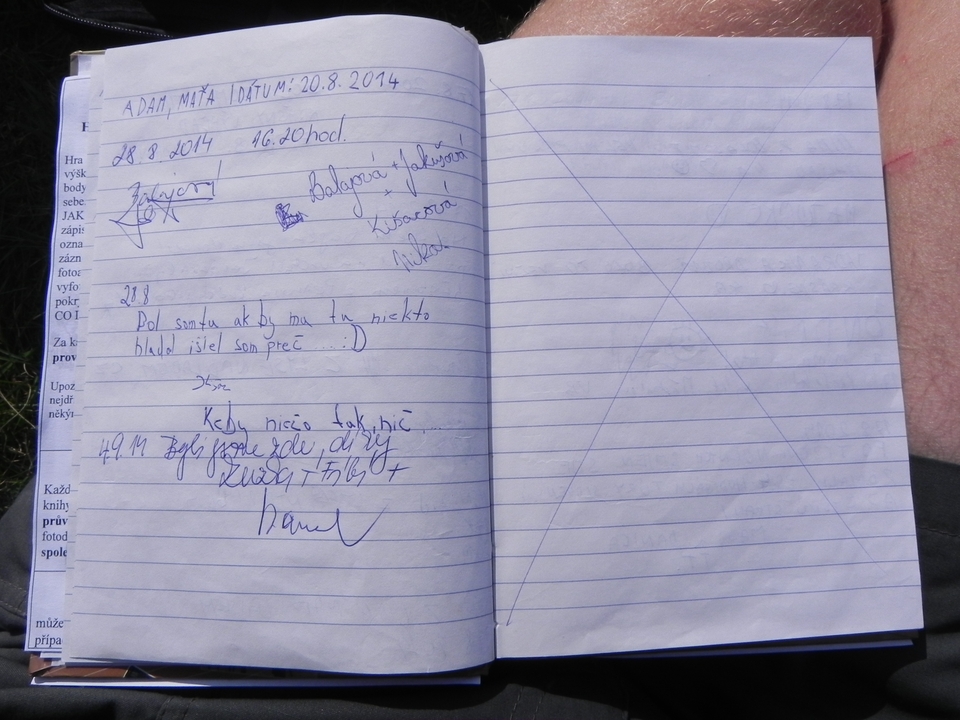 H
Hra
výšk
body
sebe
JAK
zápis
ozna
zázn
fotoa
vyfo
pokr
CO I
Za k
prov
Upoz
nejdř
někýr
Každ
knihy
prův
fotod
spole
může
přípa
ADAM, MAŤA | DÁTUM: 20.8.2014
28.8.2014 16.20 hod.
Balajová + Jakušová
+
Nika
28.8
Bol som tu ak by ma tu niekto
hladal išiel som preč ....:D
Keby niečo tak, nič ...
4.9.14 Byli jsme zde, díky
Zuzka +